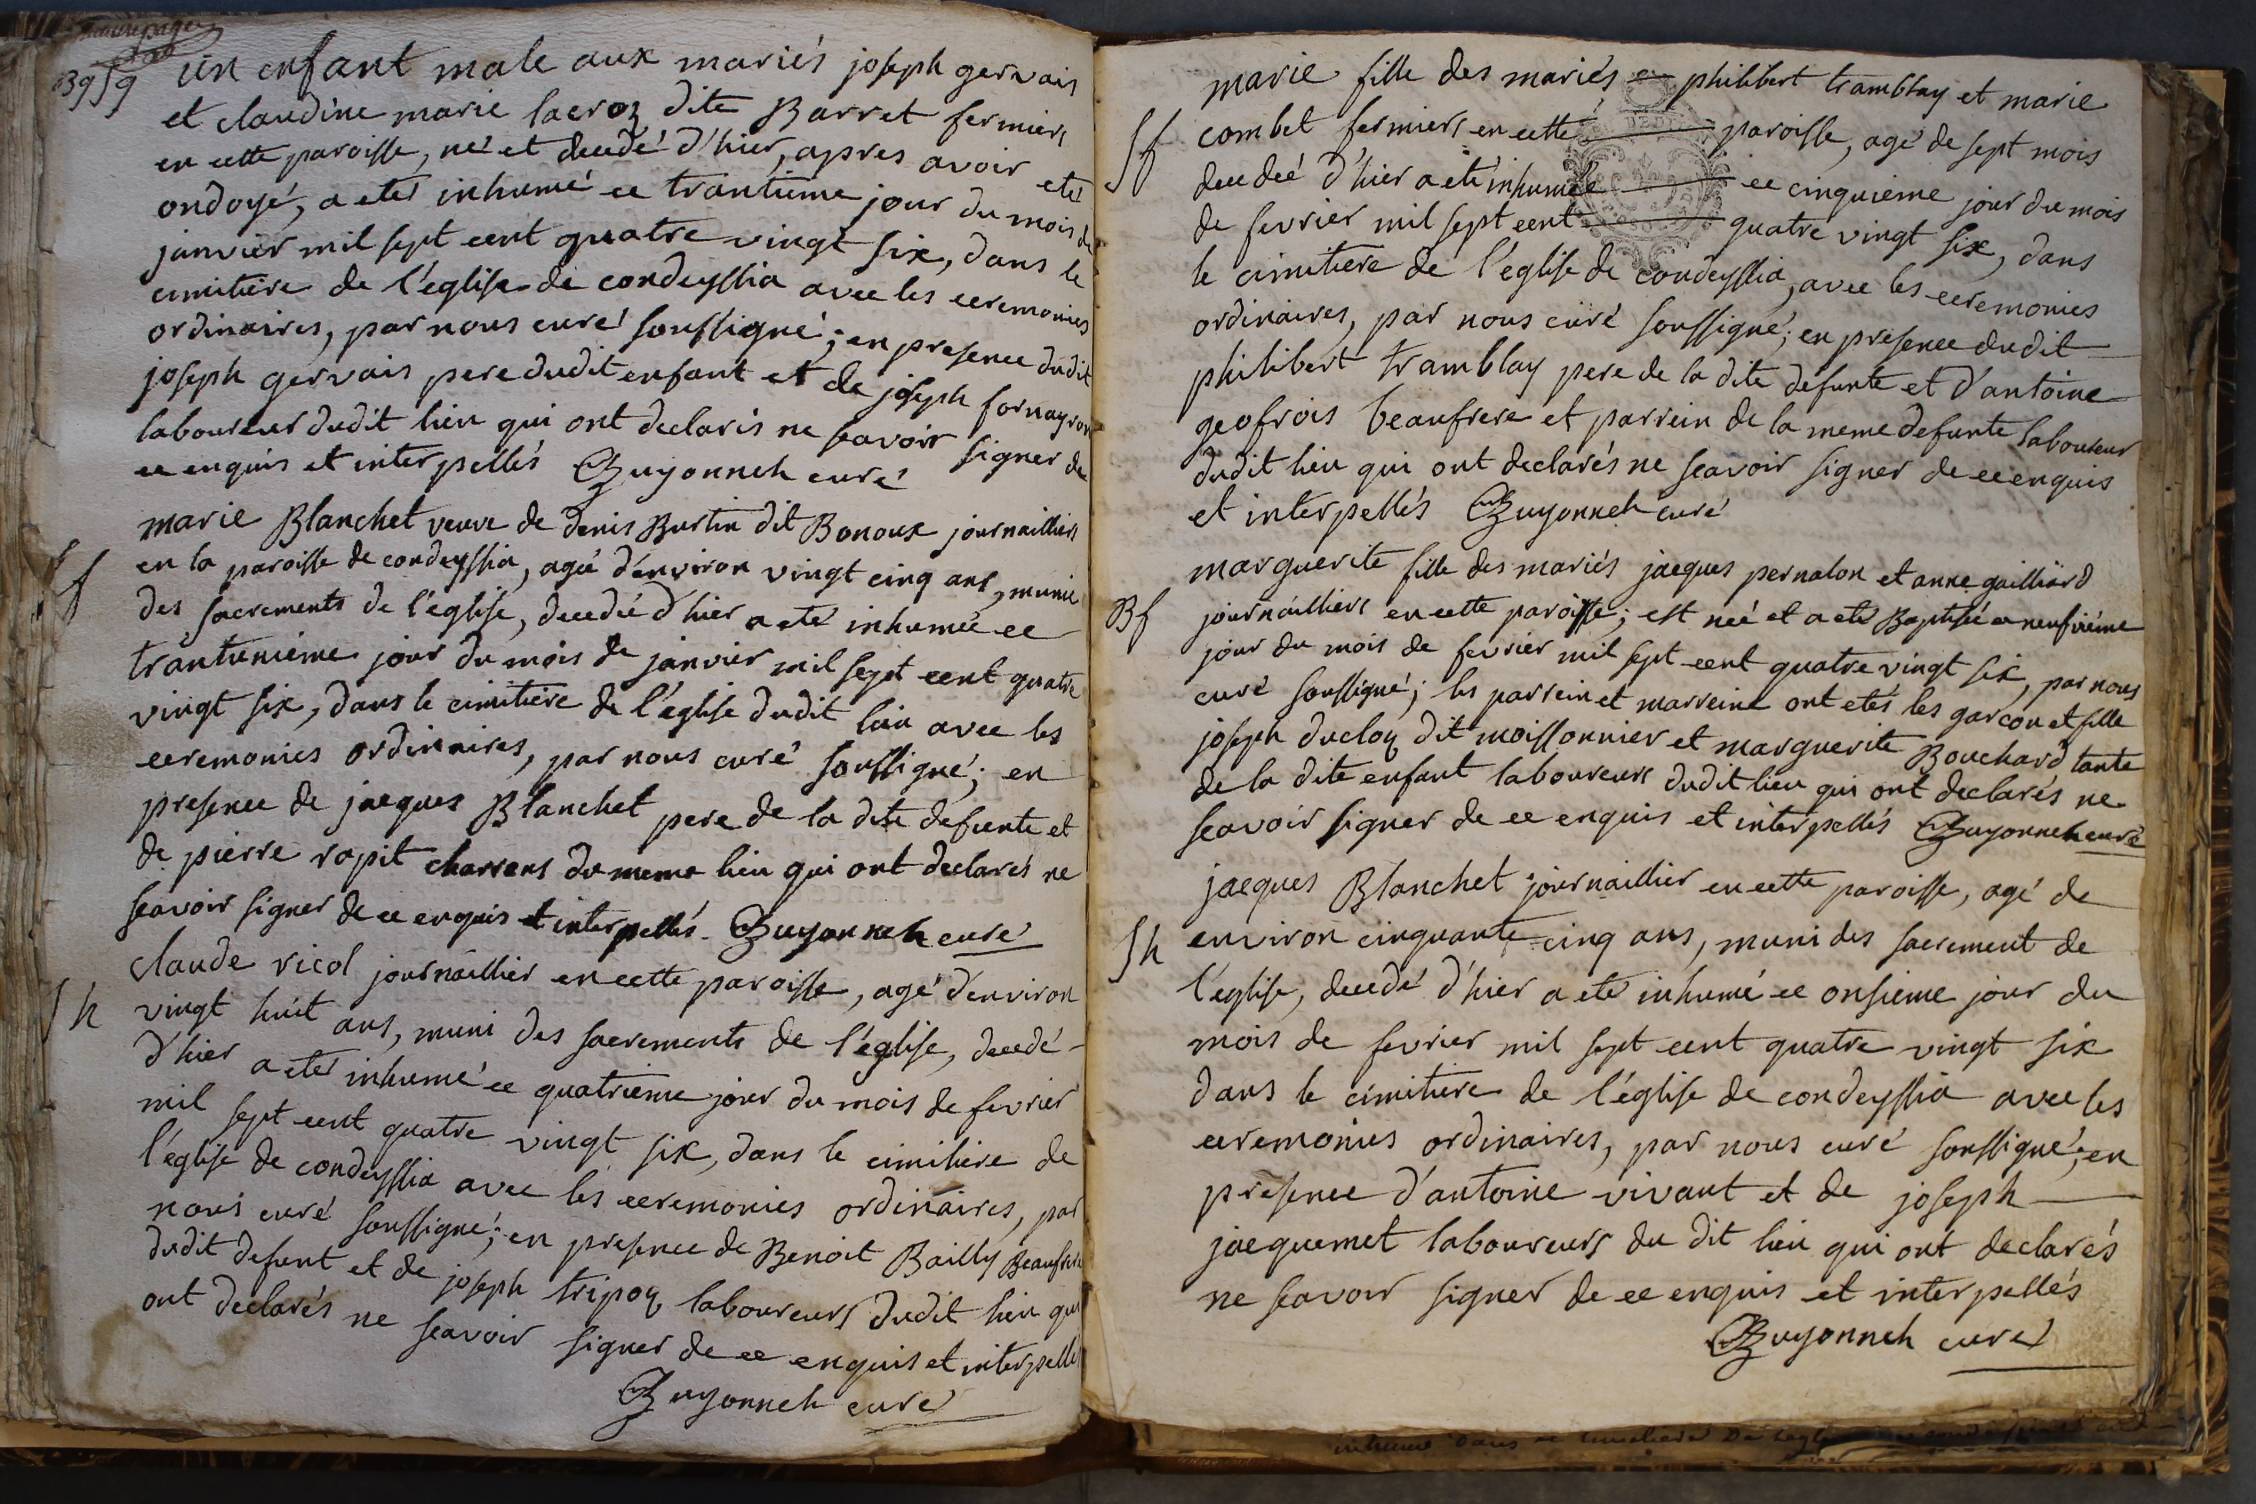 BgSg un enfant male aux mariés joseph gervais
et claudine marie lacroz dite Barret fermiers
en cette paroisse, né et decedé d'hier, apres avoir eté
ondoyé, a eté inhumé ce trantieme jour du mois de
janvier mil sept cent quatre vingt six, dans le
cimitiere de l'eglise de condeyssia avec les ceremonies
ordinaires, par nous curé soussigné; en presence dudit
joseph gervais pere dudit enfant et de joseph fornayron
laboureur dudit lieu qui ont declarés ne scavoir signer de
ce enquis et interpellés Guyonneh curé
marie Blanchet veuve de denis Burtin dit Bonoux journailliers
Sf en la paroisse de condeyssia, agé d'environ vingt cinq ans, munie
des sacrements de l'église, decedée d'hier a eté inhumée ce
trantunieme jour du mois de janvier mil sept cent quatre
vingt six, dans le cimitiere de l'église dudit lieu avec les
ceremonies ordinaires, par nous curé soussigné; en
presence de jacques Blanchet pere de la dite defunte et
de pierre ropit charrons du meme lieu qui ont declarés ne
scavoir signer de ce enquis et interpellés Guyonneh curé
claude ricol journaillier en cette paroisse, agé d'environ
Sh vingt huit ans, muni des sacrements de l'église, decedé
d'hier a eté inhumé ce quatrieme jour du mois de fevrier
mil sept cent quatre vingt six, dans le cimitiere de
l'église de condeyssia avec les ceremonies ordinaires, par
nous curé soussigné; en presence de Benoit Bailly Beaufrere
dudit defunt et de joseph tripoz laboureurs dudit lieu qui
ont declarés ne scavoir signer de ce enquis et interpellés
Guyonneh curé
marie fille des mariés philibert tramblay et marie
Sf combet fermiers en cette paroisse, agé de sept mois
decedeé d'hier a eté inhumée ce cinquieme jour du mois
de fevrier mil sept cent quatre vingt six, dans
le cimitiere de l'eglise de condeyssia, avec les ceremonies
ordinaires, par nous curé soussigné; en presence dudit
philibert tramblay pere de la dite defunte et d'antoine
geofrois beaufrere et parrein de la meme defunte laboureur
dudit lieu qui ont declarés ne scavoir signer de ce enquis
et interpellés Guyonneh curé
marguerite fille des mariés jacques pernalon et anne gailliard
Bf journailliers en cette paroisse; est née et a eté Baptisée ce neufvieme
jour du mois de fevrier mil sept cent quatre vingt six, par nous
curé soussigné; les parrein et marreine ont etés les garcon et fille
joseph ducloz dit moissonnier et marguerite Bouchard tante
de la dite enfant laboureurs dudit lieu qui ont declarés ne
scavoir signer de ce enquis et interpellés Guyonneh curé
jacques Blanchet journaillier en cette paroisse, agé de
Sh environ cinquante cinq ans, muni des sacrement de
l'eglise, decedé d'hier a eté inhumé ce onsieme jour du
mois de fevrier mil sept cent quatre vingt six
dans le cimitiere de l'église de condeyssia avec les
ceremonies ordinaires, par nous curé soussigné; en
presence d'antoine vivant et de joseph
jacquemet laboureurs du dit lieu qui ont declarés
ne scavoir signer de ce enquis et interpellés
Guyonneh curé